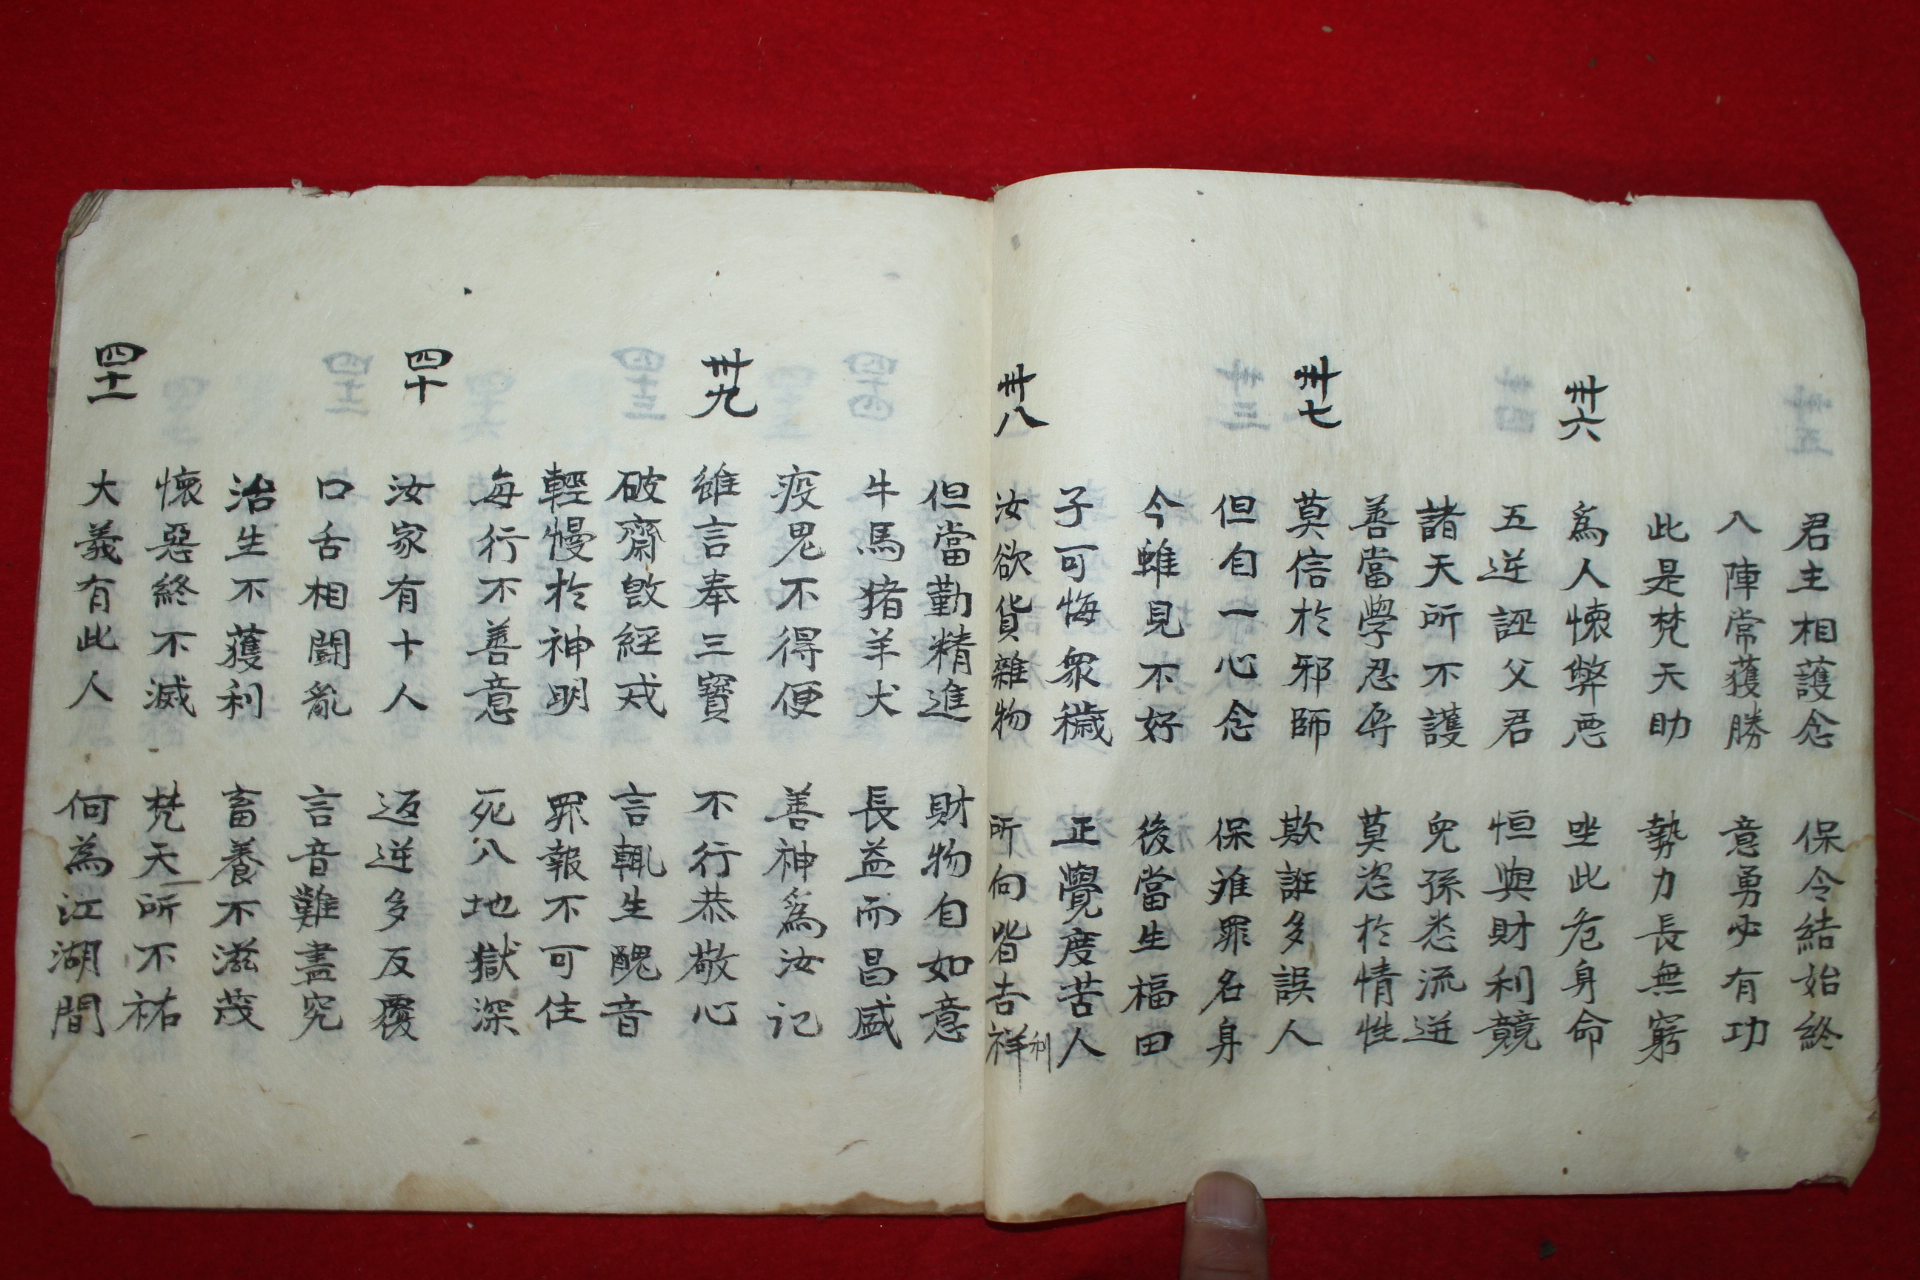 君主相護念 保令結始終
八陣常獲勝 意勇必有功
此是梵天助 勢力長無窮
卅六
為人懷弊悪 坐此危身命
五逆誣父君 恒與財利競
諸天所不護 兒孫悉流迸
善當學忍辱 莫恣於情性
卅七
莫信於邪師 欺誑多誤人
但自一心念 保難罪名身
今雖見不好 後當生福田
子可悔衆穢 正覺度苦人
卅八
汝欲貨雜物 所向皆吉祥利
但當勤精進 財物自如意
牛馬猪羊犬 長益而昌盛
疫鬼不得便 善神為汝記
卅九
雖言奉三寶 不行恭敬心
破齋毀經戒 言輒生醜音
輕慢於神明 罪報不可住
每行不善意 死八地獄深
四十
汝家有十人 返逆多反覆
口舌相鬪亂 言音難盡究
治生不獲利 畜養不滋茂
懷惡終不滅 梵天所不祐
四十一
大義有此人 何為江湖間